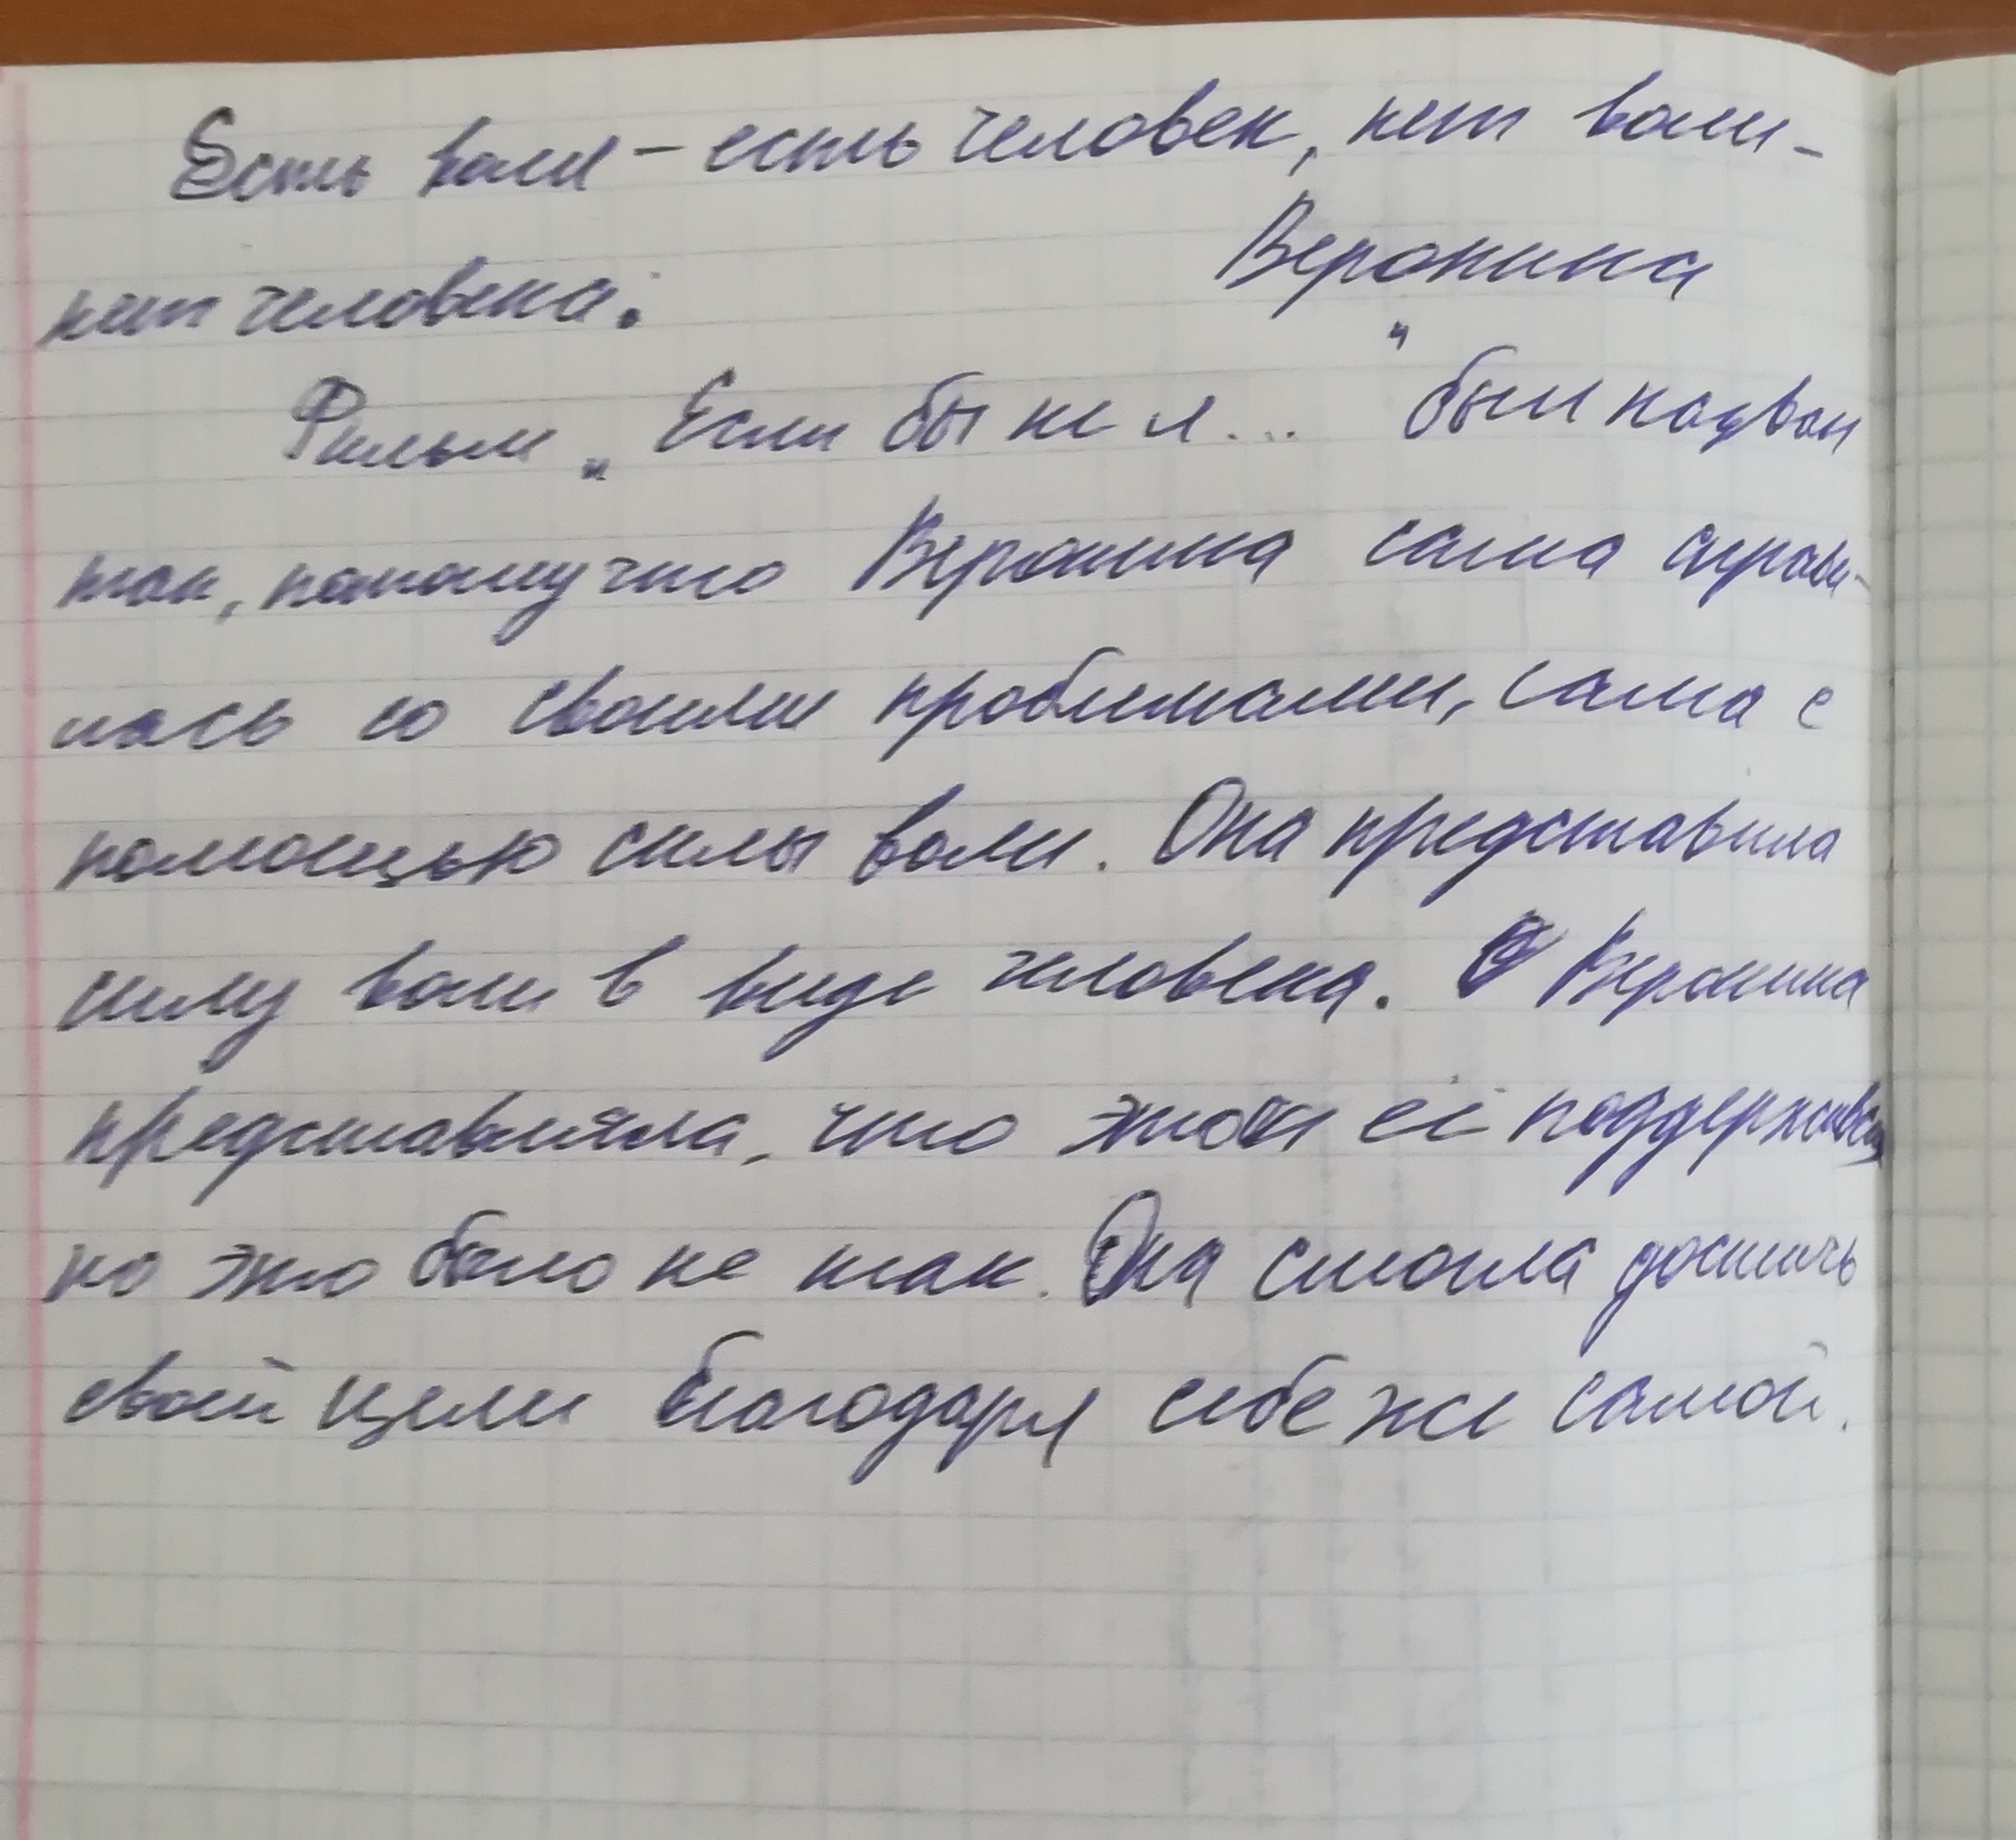 Есть воля – есть человек, нет воли –
нет человека.
Вероника
Фильм „Если бы не я..." был назван
так, потому что Вероника сама справи-
лась со своими проблемами, сама с
помощью силы воли. Она представила
силу воли в виде человека. Вероника
представляла, что этот её поддерживал
но это было не так. Она смогла достичь
своей цели благодаря себе же самой.